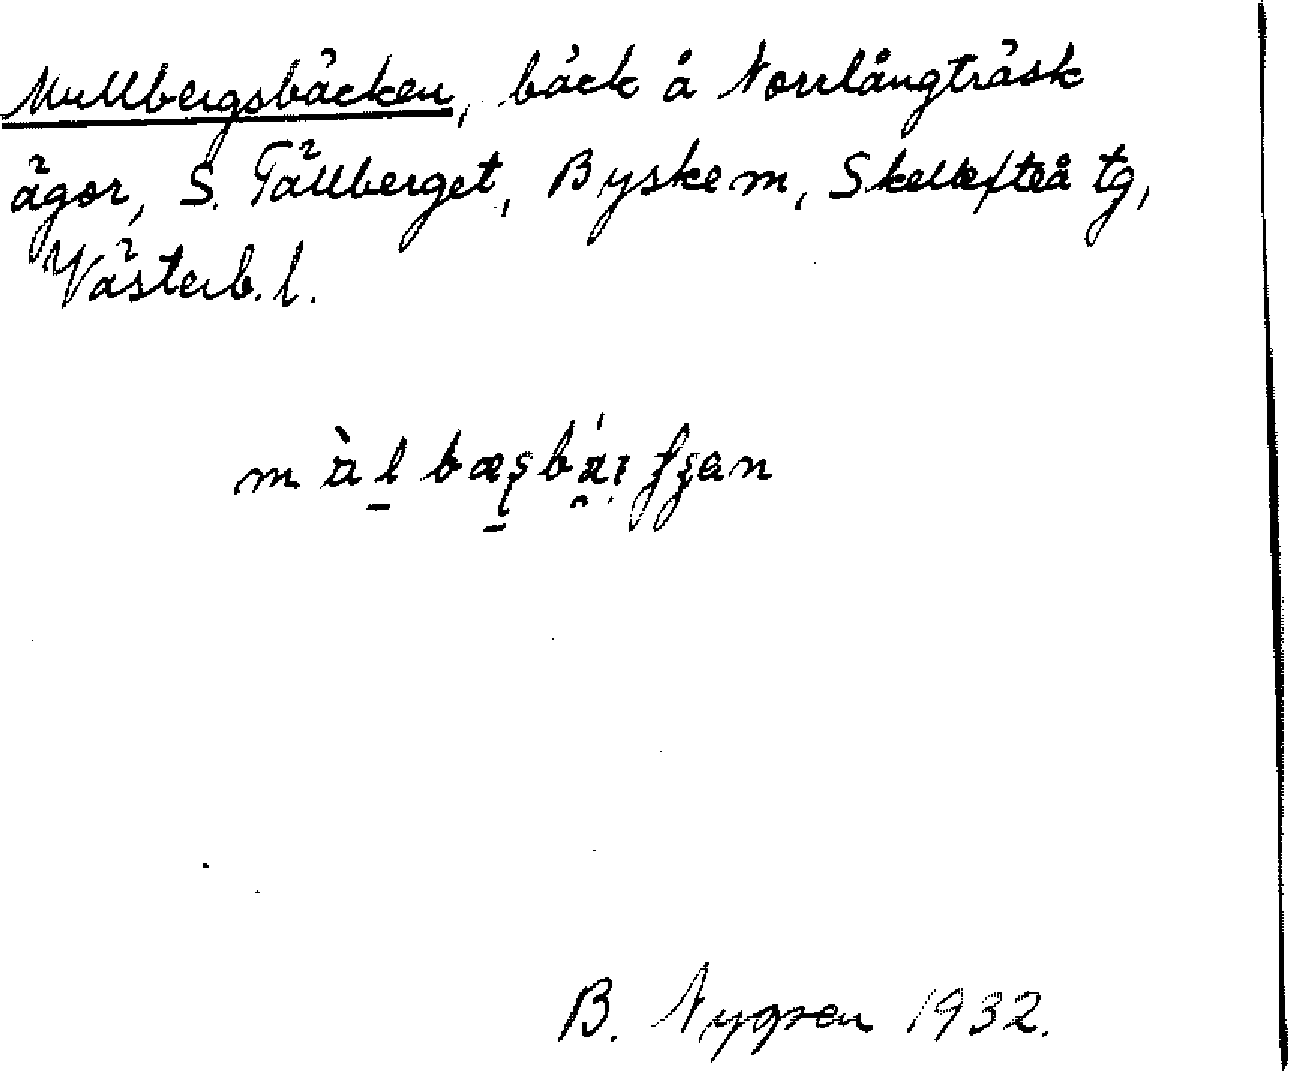 Mullbergsbäcken, bäck å Norrlångträsk
ägor, S. Tällberget, Byske m, Skellefteå tg,
Västerb. l.
B. Nygren 1932.